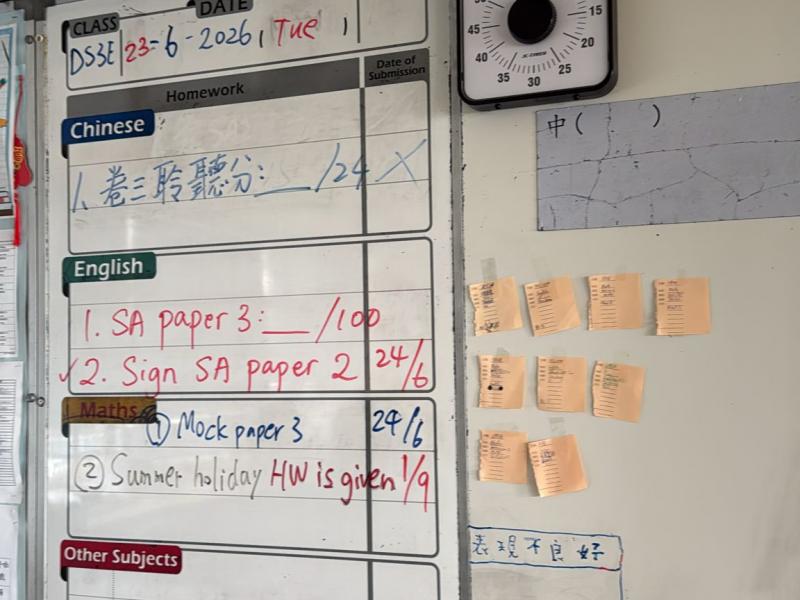 CLASS DATE
DS3E 23-6-2026 ( Tue )
Homework
Date of Submission
Chinese
1. 卷三聆聽分: __ /24 X
English
1. SA paper 3: __ /100
✓2. Sign SA paper 2 24/6
Maths
① Mock paper 3 24/6
② Summer holiday HW is given 1/9
Other Subjects
15
45 20
40 25
35 30
中( )
表現不良好